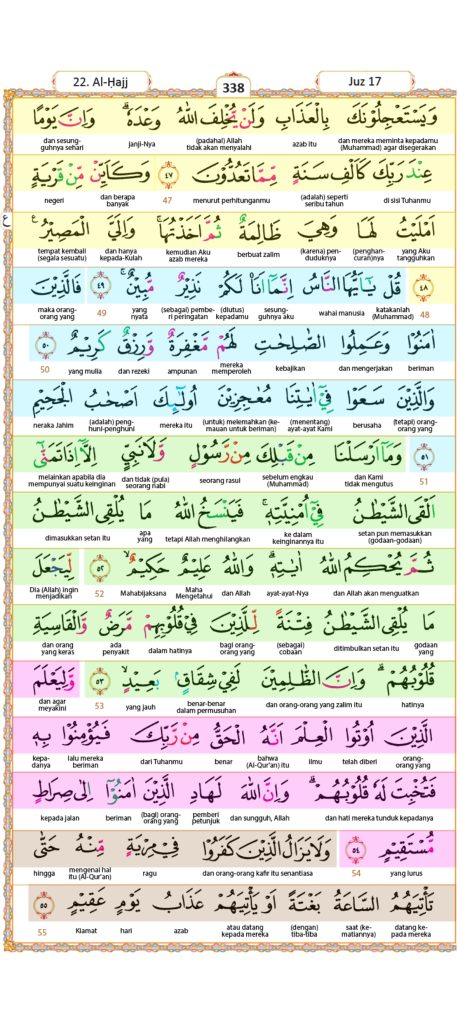 22. Al-Ḥajj
338
Juz 17
وَيَسْتَعْجِلُوْنَكَ بِالْعَذَابِ وَلَنْ يُّخْلِفَ اللّٰهُ وَعْدَهٗۗ وَاِنَّ يَوْمًا
dan mereka meminta kepadamu (Muhammad) agar disegerakan azab itu (padahal) Allah tidak akan menyalahi janji-Nya dan sesung-guhnya sehari
عِنْدَ رَبِّكَ كَاَلْفِ سَنَةٍ مِّمَّا تَعُدُّوْنَ ٤٧ وَكَاَيِّنْ مِّنْ قَرْيَةٍ
di sisi Tuhanmu (adalah) seperti seribu tahun menurut perhitunganmu 47 dan berapa banyak negeri
ع
اَمْلَيْتُ لَهَا وَهِيَ ظَالِمَةٌ ثُمَّ اَخَذْتُهَاۚ وَاِلَيَّ الْمَصِيْرُ
yang Aku tangguhkan (penghan-curan)nya (karena) pen-duduknya berbuat zalim kemudian Aku azab mereka dan hanya kepada-Kulah tempat kembali (segala sesuatu)
٤٨ قُلْ يٰٓاَيُّهَا النَّاسُ اِنَّمَآ اَنَا۠ لَكُمْ نَذِيْرٌ مُّبِيْنٌۚ ٤٩ فَالَّذِيْنَ
48 katakanlah (Muhammad) wahai manusia sesung-guhnya aku (diutus) kepadamu (sebagai) pembe-ri peringatan yang nyata 49 maka orang-orang yang
اٰمَنُوْا وَعَمِلُوا الصّٰلِحٰتِ لَهُمْ مَّغْفِرَةٌ وَّرِزْقٌ كَرِيْمٌ ٥٠
beriman dan mengerjakan kebajikan mereka memperoleh ampunan dan rezeki yang mulia 50
وَالَّذِيْنَ سَعَوْا فِيْٓ اٰيٰتِنَا مُعٰجِزِيْنَ اُولٰۤىِٕكَ اَصْحٰبُ الْجَحِيْمِ
(tetapi) orang-orang yang berusaha (menentang) ayat-ayat Kami (untuk) melemahkan (ke-mauan untuk beriman) mereka itu (adalah) peng-huni-penghuni neraka Jahim
٥١ وَمَآ اَرْسَلْنَا مِنْ قَبْلِكَ مِنْ رَّسُوْلٍ وَّلَا نَبِيٍّ اِلَّآ اِذَا تَمَنّٰىٓ
51 dan Kami tidak mengutus sebelum engkau (Muhammad) seorang rasul dan tidak (pula) seorang nabi melainkan apabila dia mempunyai suatu keinginan
اَلْقَى الشَّيْطٰنُ فِيْٓ اُمْنِيَّتِهٖۚ فَيَنْسَخُ اللّٰهُ مَا يُلْقِى الشَّيْطٰنُ
setan pun memasukkan (godaan-godaan) ke dalam keinginannya itu tetapi Allah menghilangkan apa yang dimasukkan setan itu
ثُمَّ يُحْكِمُ اللّٰهُ اٰيٰتِهٖۗ وَاللّٰهُ عَلِيْمٌ حَكِيْمٌۙ ٥٢ لِّيَجْعَلَ
dan Allah akan menguatkan ayat-ayat-Nya dan Allah Maha Mengetahui Mahabijaksana 52 Dia (Allah) ingin menjadikan
مَا يُلْقِى الشَّيْطٰنُ فِتْنَةً لِّلَّذِيْنَ فِيْ قُلُوْبِهِمْ مَّرَضٌ وَّالْقَاسِيَةِ
godaan yang ditimbulkan setan itu (sebagai) cobaan bagi orang-orang yang dalam hatinya ada penyakit dan orang yang keras
قُلُوْبُهُمْۗ وَاِنَّ الظّٰلِمِيْنَ لَفِيْ شِقَاقٍۢ بَعِيْدٍۙ ٥٣ وَّلِيَعْلَمَ
hatinya dan orang-orang yang zalim itu benar-benar dalam permusuhan yang jauh 53 dan agar meyakini
الَّذِيْنَ اُوْتُوا الْعِلْمَ اَنَّهُ الْحَقُّ مِنْ رَّبِّكَ فَيُؤْمِنُوْا بِهٖ
orang-orang yang telah diberi ilmu bahwa (Al-Qur'an) itu benar dari Tuhanmu lalu mereka beriman kepa-danya
فَتُخْبِتَ لَهٗ قُلُوْبُهُمْۗ وَاِنَّ اللّٰهَ لَهَادِ الَّذِيْنَ اٰمَنُوْٓا اِلٰى صِرَاطٍ
dan hati mereka tunduk kepadanya dan sungguh, Allah pemberi petunjuk (bagi) orang-orang yang beriman kepada jalan
مُّسْتَقِيْمٍ ٥٤ وَلَا يَزَالُ الَّذِيْنَ كَفَرُوْا فِيْ مِرْيَةٍ مِّنْهُ حَتّٰى
yang lurus 54 dan orang-orang kafir itu senantiasa ragu mengenai hal itu (Al-Qur'an) hingga
تَأْتِيَهُمُ السَّاعَةُ بَغْتَةً اَوْ يَأْتِيَهُمْ عَذَابُ يَوْمٍ عَقِيْمٍ ٥٥
datang ke-pada mereka saat (ke-matiannya) (dengan) tiba-tiba atau datang kepada mereka azab hari Kiamat 55